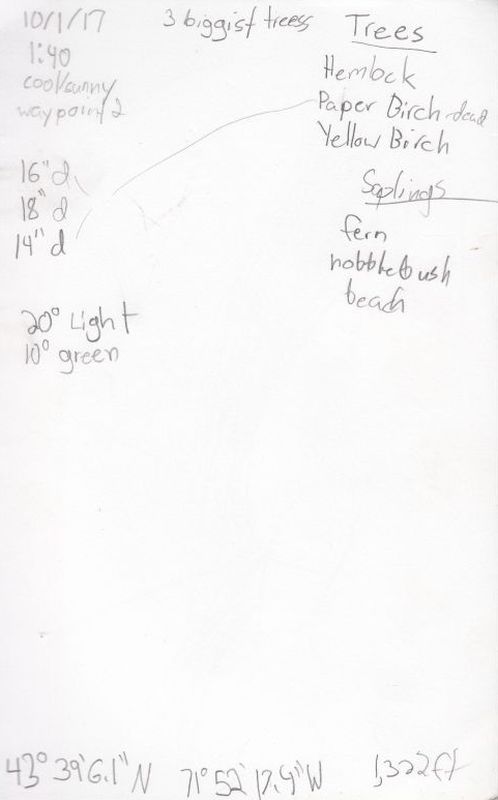 10/1/17
1:40
cool/sunny
waypoint 2
3 biggist treess
Trees
Hemlock
Paper Birch-dead
Yellow Birch
Saplings
fern
hobblebush
beach
16"d
18" d
14" d
20° Light
10° green
43° 39'6.1" N 71° 52' 17.9" W 1,322ft